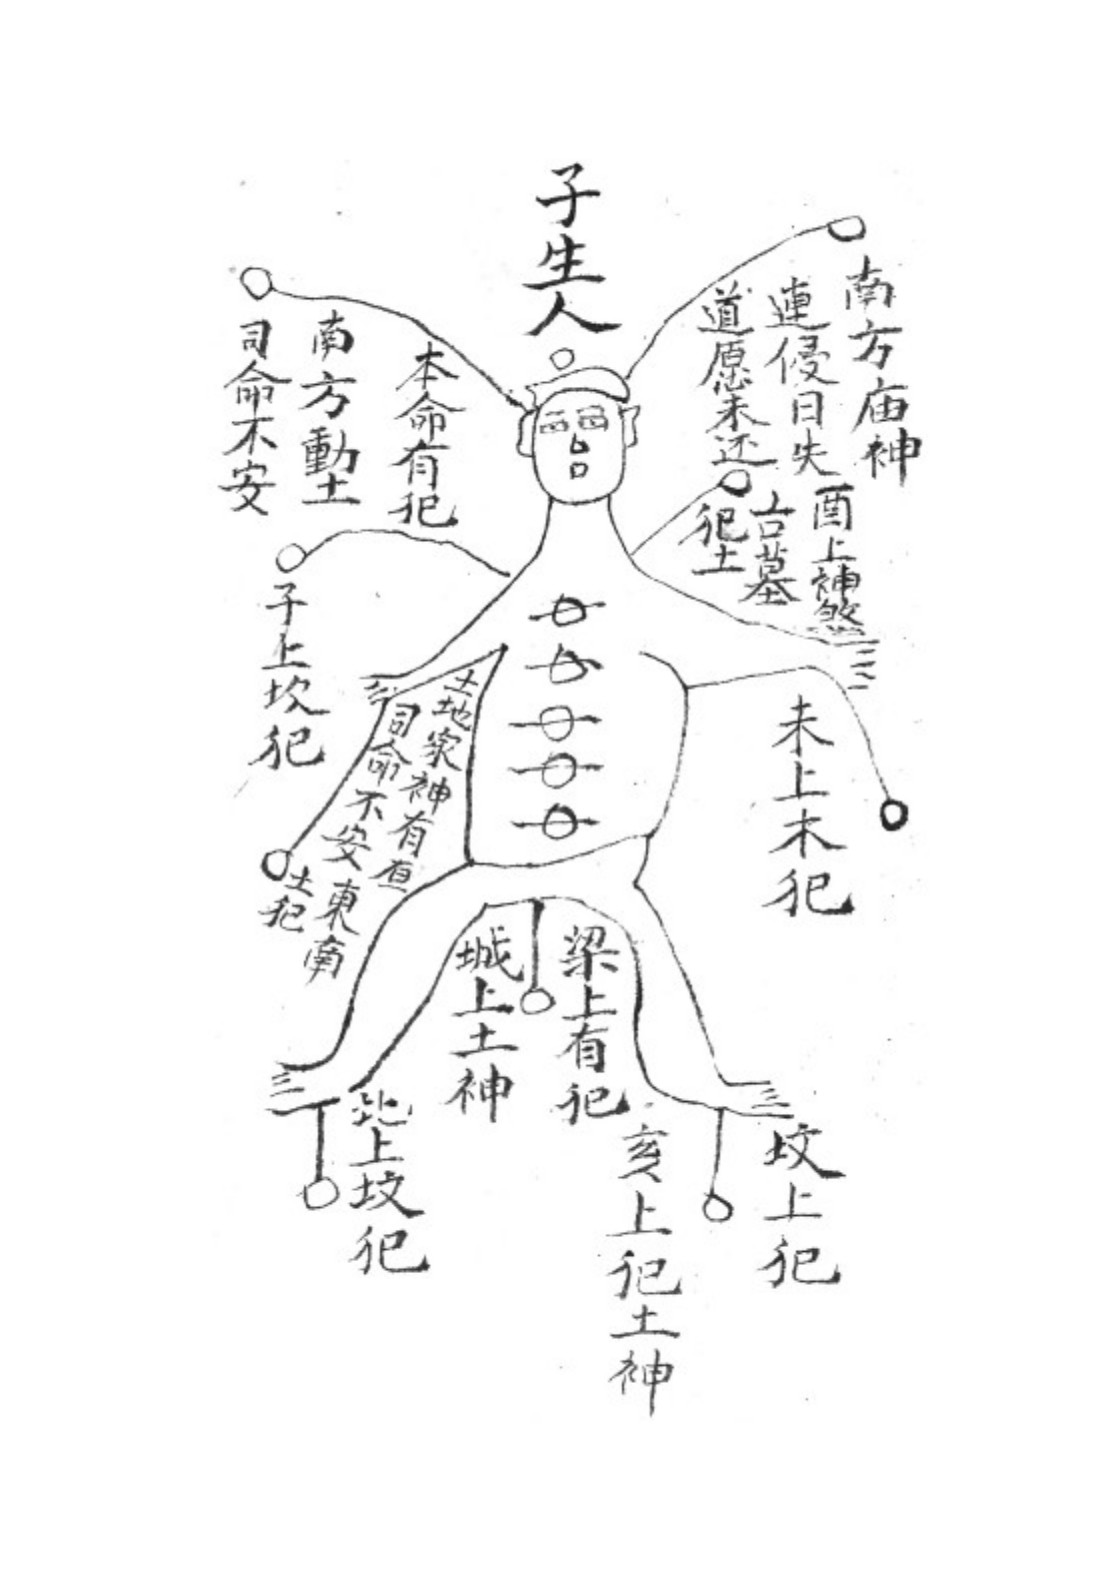 子生人
南方庙神
連侵日失
道愿未还
酉上神煞
古墓
犯土
本命有犯
南方動土
司命不安
子上坎犯
未上木犯
土地家神有
司命不安東南
土犯
梁上有犯
城上土神
坟上犯
亥上犯土神
上坟犯